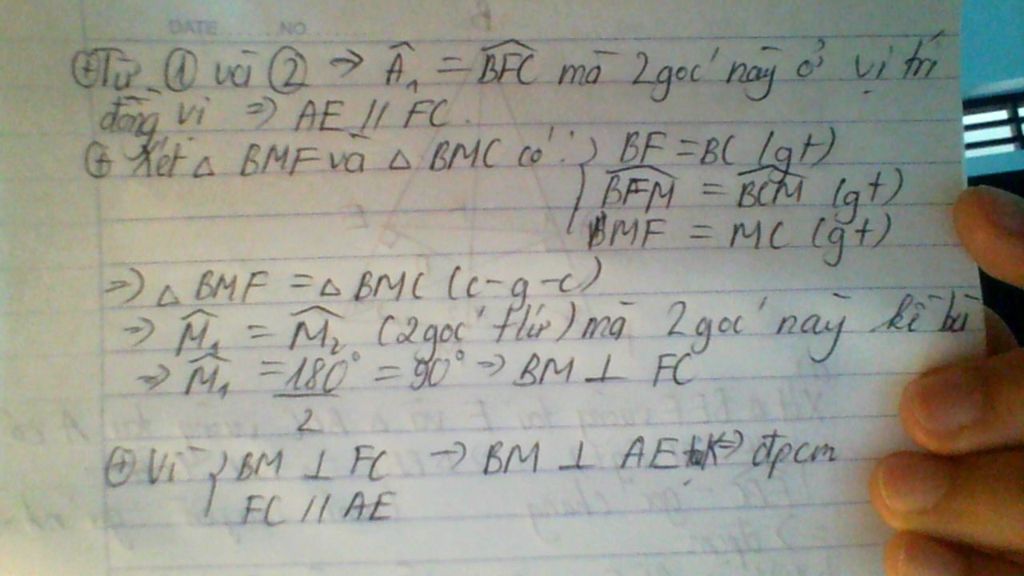 DATE NO
⊕ Từ ① và ② => Â₁ = BFC mà 2 góc này ở vị trí
đồng vị => AE // FC.
⊕ Xét △ BMF và △ BMC có: { BF = BC (gt)
BFM = BCM (gt)
BMF = MC (gt)
=> △ BMF = △ BMC (c-g-c)
=> M₁ = M₂ (2 góc t/ứ) mà 2 góc này kề bù
=> M₁ = 180°/2 = 90° => BM ⊥ FC
⊕ Vì { BM ⊥ FC => BM ⊥ AE => đpcm
FC // AE